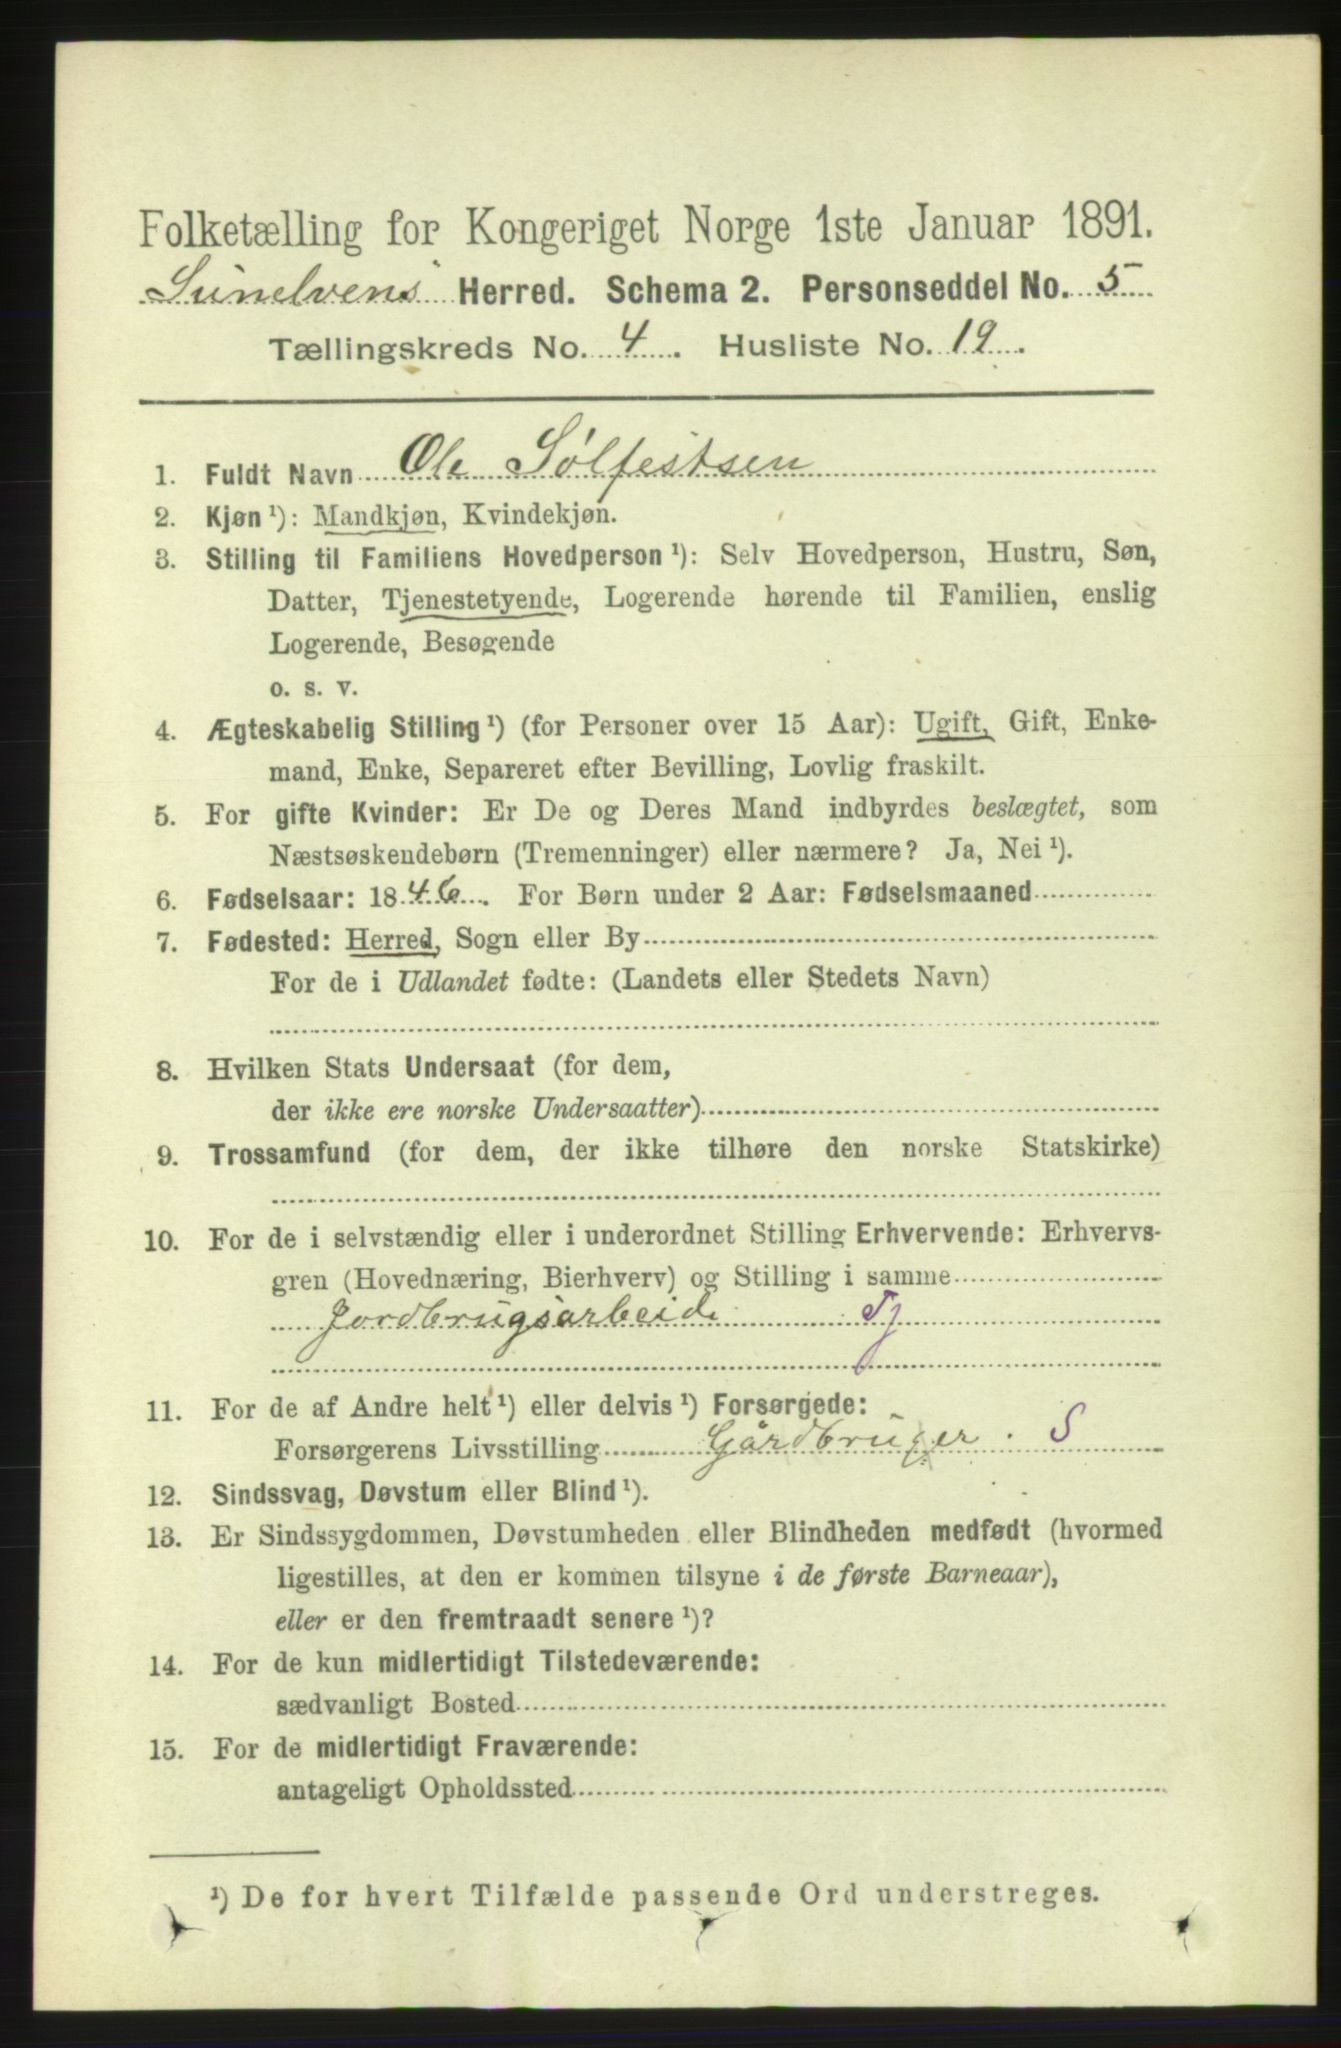 Folketælling for Kongeriget Norge 1ste Januar 1891.
Sunelvens Herred. Schema 2. Personseddel No. 5
Tællingskreds No. 4. Husliste No. 19.
1. Fuldt Navn Ole Sølfestsen
2. Kjøn ¹): Mandkjøn, Kvindekjøn.
3. Stilling til Familiens Hovedperson ¹): Selv Hovedperson, Hustru, Søn,
Datter, Tjenestetyende, Logerende hørende til Familien, enslig
Logerende, Besøgende
o. s. v.
4. Ægteskabelig Stilling ¹) (for Personer over 15 Aar): Ugift, Gift, Enke-
mand, Enke, Separeret efter Bevilling, Lovlig fraskilt.
5. For gifte Kvinder: Er De og Deres Mand indbyrdes beslægtet, som
Næstsøskendebørn (Tremenninger) eller nærmere? Ja, Nei ¹).
6. Fødselsaar: 1846. For Børn under 2 Aar: Fødselsmaaned
7. Fødested: Herred, Sogn eller By
For de i Udlandet fødte: (Landets eller Stedets Navn)
8. Hvilken Stats Undersaat (for dem,
der ikke ere norske Undersaatter)
9. Trossamfund (for dem, der ikke tilhøre den norske Statskirke)
10. For de i selvstændig eller i underordnet Stilling Erhvervende: Erhvervs-
gren (Hovednæring, Bierhverv) og Stilling i samme
Jordbrugsarbeide Tj
11. For de af Andre helt ¹) eller delvis ¹) Forsørgede:
Forsørgerens Livsstilling Gårdbruger. S
12. Sindssvag, Døvstum eller Blind ¹).
13. Er Sindssygdommen, Døvstumheden eller Blindheden medfødt (hvormed
ligestilles, at den er kommen tilsyne i de første Barneaar),
eller er den fremtraadt senere ¹)?
14. For de kun midlertidigt Tilstedeværende:
sædvanligt Bosted
15. For de midlertidigt Fraværende:
antageligt Opholdssted
¹) De for hvert Tilfælde passende Ord understreges.